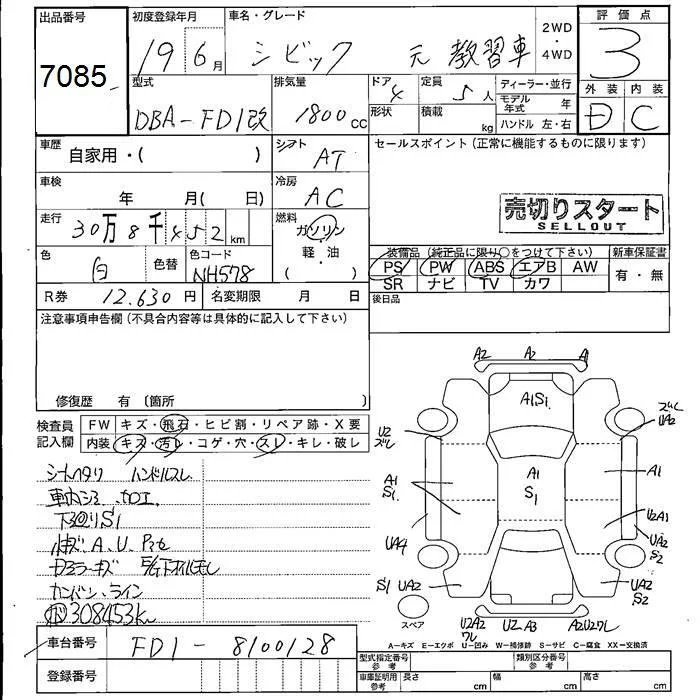 出品番号 初度登録年月 車名・グレード 評価点
7085 19 6月 シビック 元教習車 2WD・4WD 3
型式 排気量 ドア 4 定員 5人 ディーラー・並行 外装 内装
DBA-FD1改 1800cc 形状 積載 kg モデル年式 年 D C
ハンドル 左・右
車歴 自家用・( ) シフト AT セールスポイント(正常に機能するものに限ります)
車検 年 月( 日) 冷房 AC
走行 30万8千452km 燃料 ガソリン・軽・油 ( ) 売切りスタート
SELLOUT
色 白 色替 色コード NH578 装備品(純正品に限り○をつけて下さい) 新車保証書
PS PW ABS エアB AW 有・無
SR ナビ TV カワ
R券 12,630円 名変期限 月 日 後日品
注意事項申告欄(不具合内容等は具体的に記入して下さい)
修復歴 有〔箇所 〕
検査員記入欄 FW キズ・飛石・ヒビ割・リペア跡・X要
内装 キズ・汚レ・コゲ・穴・スレ・キレ・破レ
シートヘタリ ハンドルスレ
車内シミ 加工
下廻りS1
小キズ A、U
ミラーキズ
カンバン、ライン
308453km
A2 A2 A1
A1S1
U2 ズレ
ズレ UA2
A1 S1
A1 S1
A1
U2A1
UA4
UA2 S2
S1 UA2
UA2 S2
スペア
U2A2ワレ U2 A3 A2U2ワレ
A-キズ E-エクボ U-凹み W-補修跡 S-サビ C-腐食 XX-交換済
車台番号 FD1-8100128
登録番号
型式指定番号 参考 類別区分番号 参考
車庫証明用 参考 長さ cm 幅 cm 高さ cm